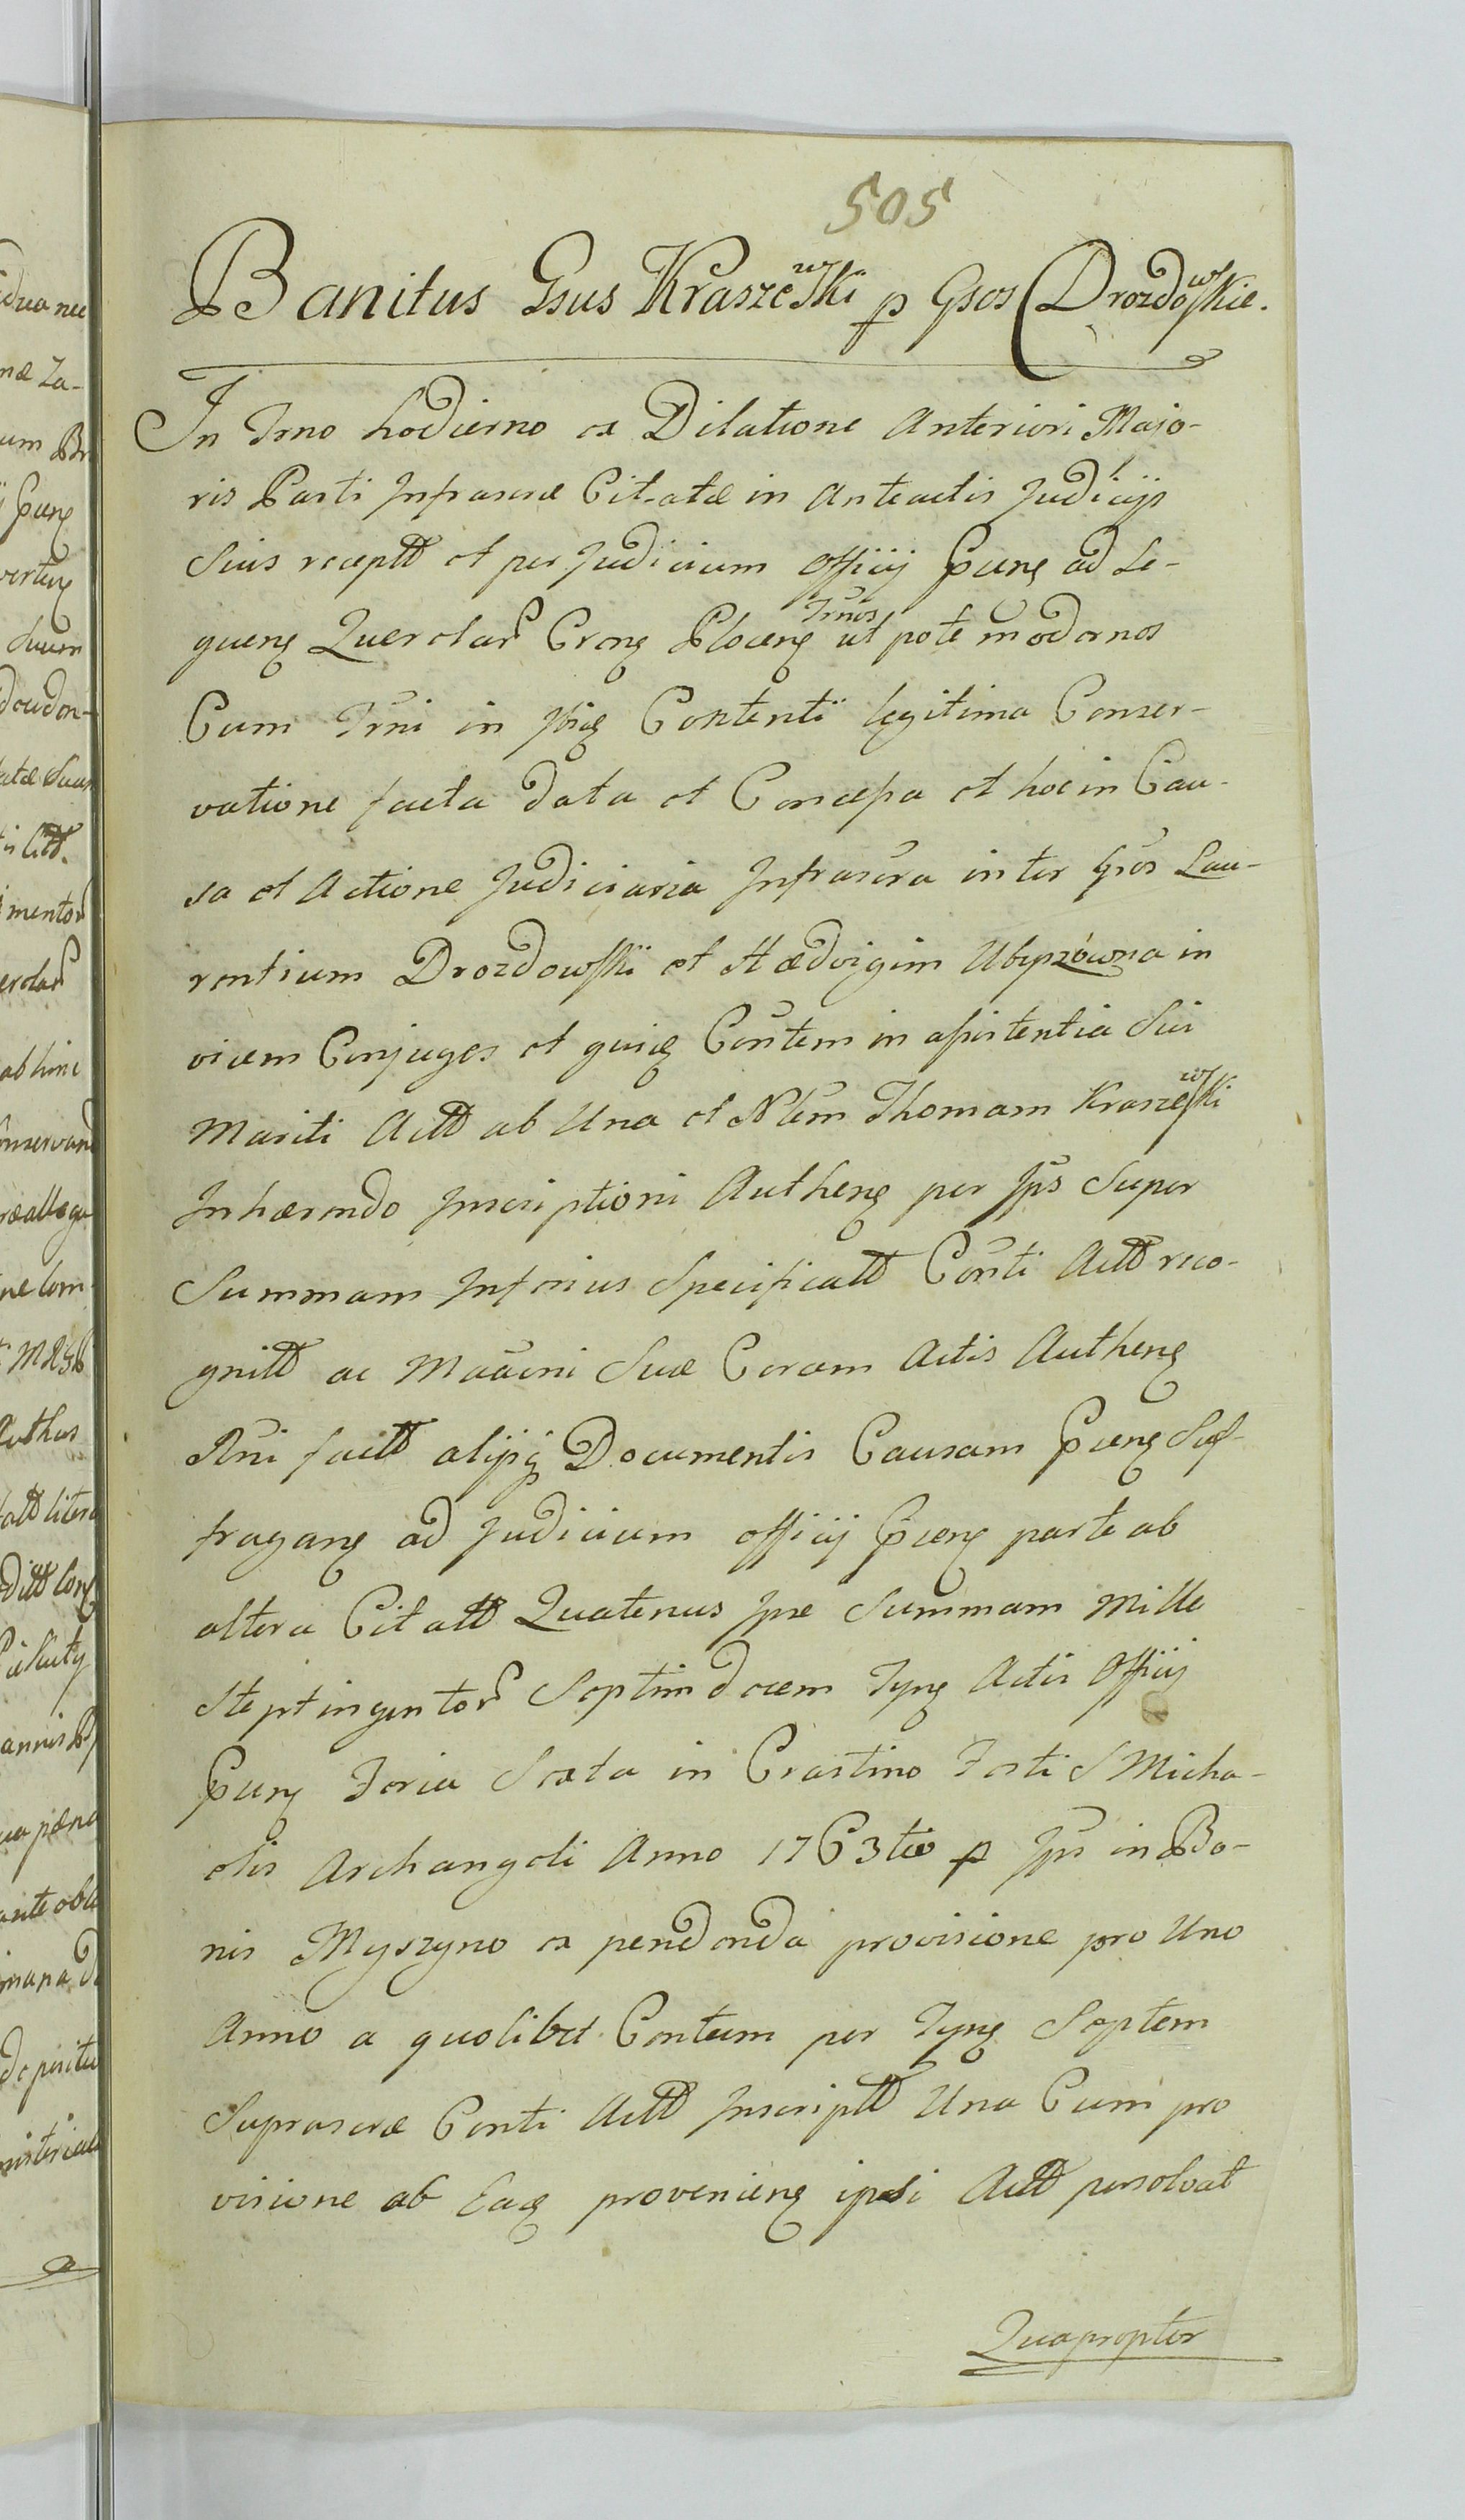 505
Banitus Gsus Kraszewski p Gsos Drozdowskie.
In Trno hodierno ex Dilatione Anteriori Majo-
ris Parti Infrascrae Citatae in Anteactis Judicijs
Suis receptt et per Judicium Officij Punę ad Se-
quenę Querelarz Cronę Plocenę Trnos ut pote modernos
Cum Trni in Contenti legitima Conser-
vatione facta data et Concessa et hoc in Cau-
sa et Actione Judiciaria Infrascra inter Gsos Lau-
rentium Drozdowski et Hedvigim Ubyszówna in
vicem Conjuges et Contem in assistentia Sui
Mariti Actt ab Una et Nlem Thomam Kraszewski
Inhaerendo Inscriptioni Authenę per Ips Super
Summam Inferius Specificatt Conti Actt reco-
gnitt ac Suae Coram Actis Authenę
factt alijsq Documentis Causam Punę Suf-
fraganę ad Judicium officij Punę parte ab
altera Citatt Quatenus Ipse Summam Mille
Steptingentorz Septimdecem Tynę Actis Officij
Punę Feria Sexta in Crastino Festi S Micha-
elis Archangeli Anno 1763tio p Ips in Bo-
nis Myszyno ex pendenda provisione pro Uno
Anno a quolibet Centum per Tynę Septem
Suprascrae Conti Actt Inscriptt Una Cum pro
visione ab Eaq provenienę ipsi Actt persolvat
Quapropter